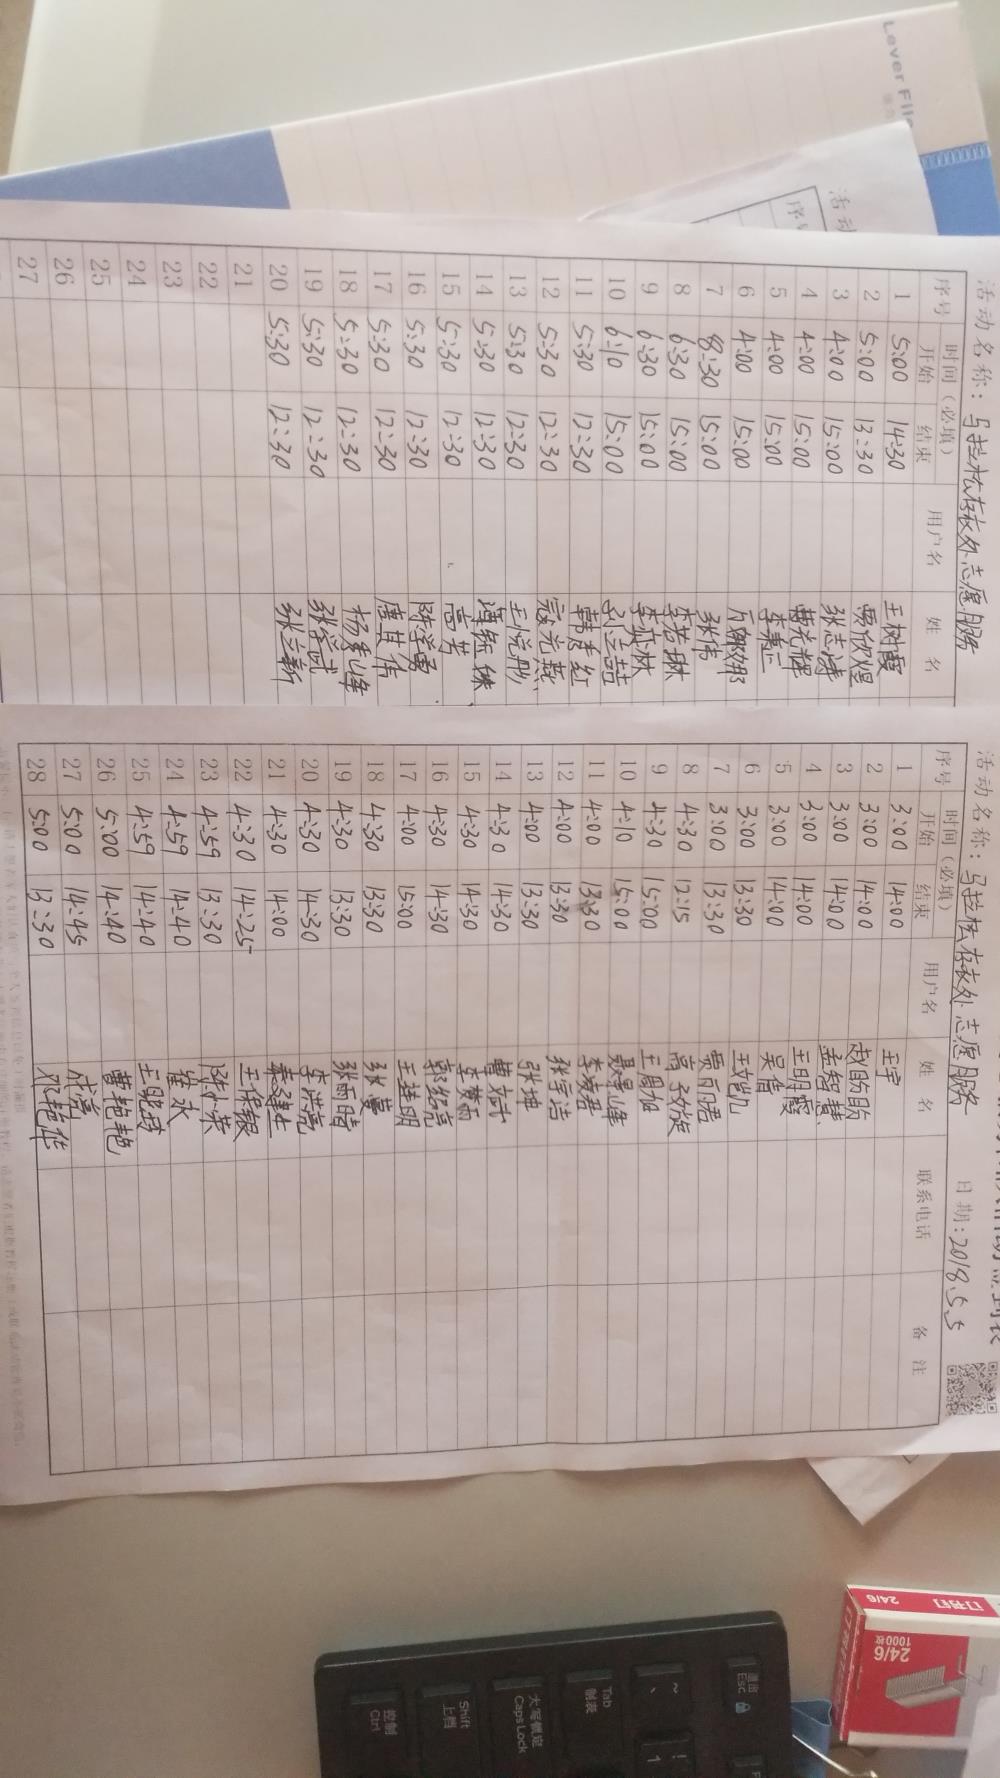 Lever File
活动
序号
活动名称：马拉松存衣处志愿服务
序号 时间（必填） 用户名 姓 名
开始 结束
1 5:00 14:30 王树霞
2 5:00 13:30 贾欣煜
3 4:00 15:00 张志涛
4 4:00 15:00 曹光辉
5 4:00 15:00 李秉正
6 4:00 15:00
7 8:30 15:00 张伟
8 6:30 15:00 李若琳
9 6:30 15:00
10 6:10 15:00
11 5:30 12:30 韩秀红
12 5:30 12:30 寇光燕
13 5:30 12:30 王悦彤
14 5:30 12:30
15 5:30 12:30 高芳
16 5:30 12:30 陈学勇
17 5:30 12:30 唐其伟
18 5:30 12:30 杨秀峰
19 5:30 12:30 张学武
20 5:30 12:30 张立新
21
22
23
24
25
26
27
活动名称：马拉松存衣处志愿服务 日期：2018.5.5
序号 时间（必填） 用户名 姓 名 联系电话 备 注
开始 结束
1 3:00 14:00 王宇
2 3:00 14:00 赵盼盼
3 3:00 14:00 孟智慧
4 3:00 14:00 王明霞
5 3:00 14:00 吴雪
6 3:00 13:30 王凯
7 3:00 13:30 贾丽君
8 4:30 12:15 高子旋
9 4:30 15:00 王周旭
10 4:10 15:00 聂景峰
11 4:00 13:30 李凌君
12 4:00 13:30 张宇洁
13 4:00 13:30 张坤
14 4:30 14:30 曹斌
15 4:30 14:30 李梦雨
16 4:30 14:30 郭绍亮
17 4:00 15:00 王桂明
18 4:30 13:30 张蔓
19 4:30 13:30 张雨晴
20 4:30 14:30 李洪亮
21 4:30 14:00
22 4:30 14:25 王保银
23 4:59 13:30 陈小荣
24 4:59 14:40 崔永
25 4:59 14:40
26 5:00 14:40 曹艳艳
27 5:00 14:45 成涛
28 5:00 13:30 邓艳华
24/6
24/6
1000枚
退出
Esc
~
、
!
1
Tab
制表
大写锁定
Caps Lock
Shift
上档
控制
Ctrl